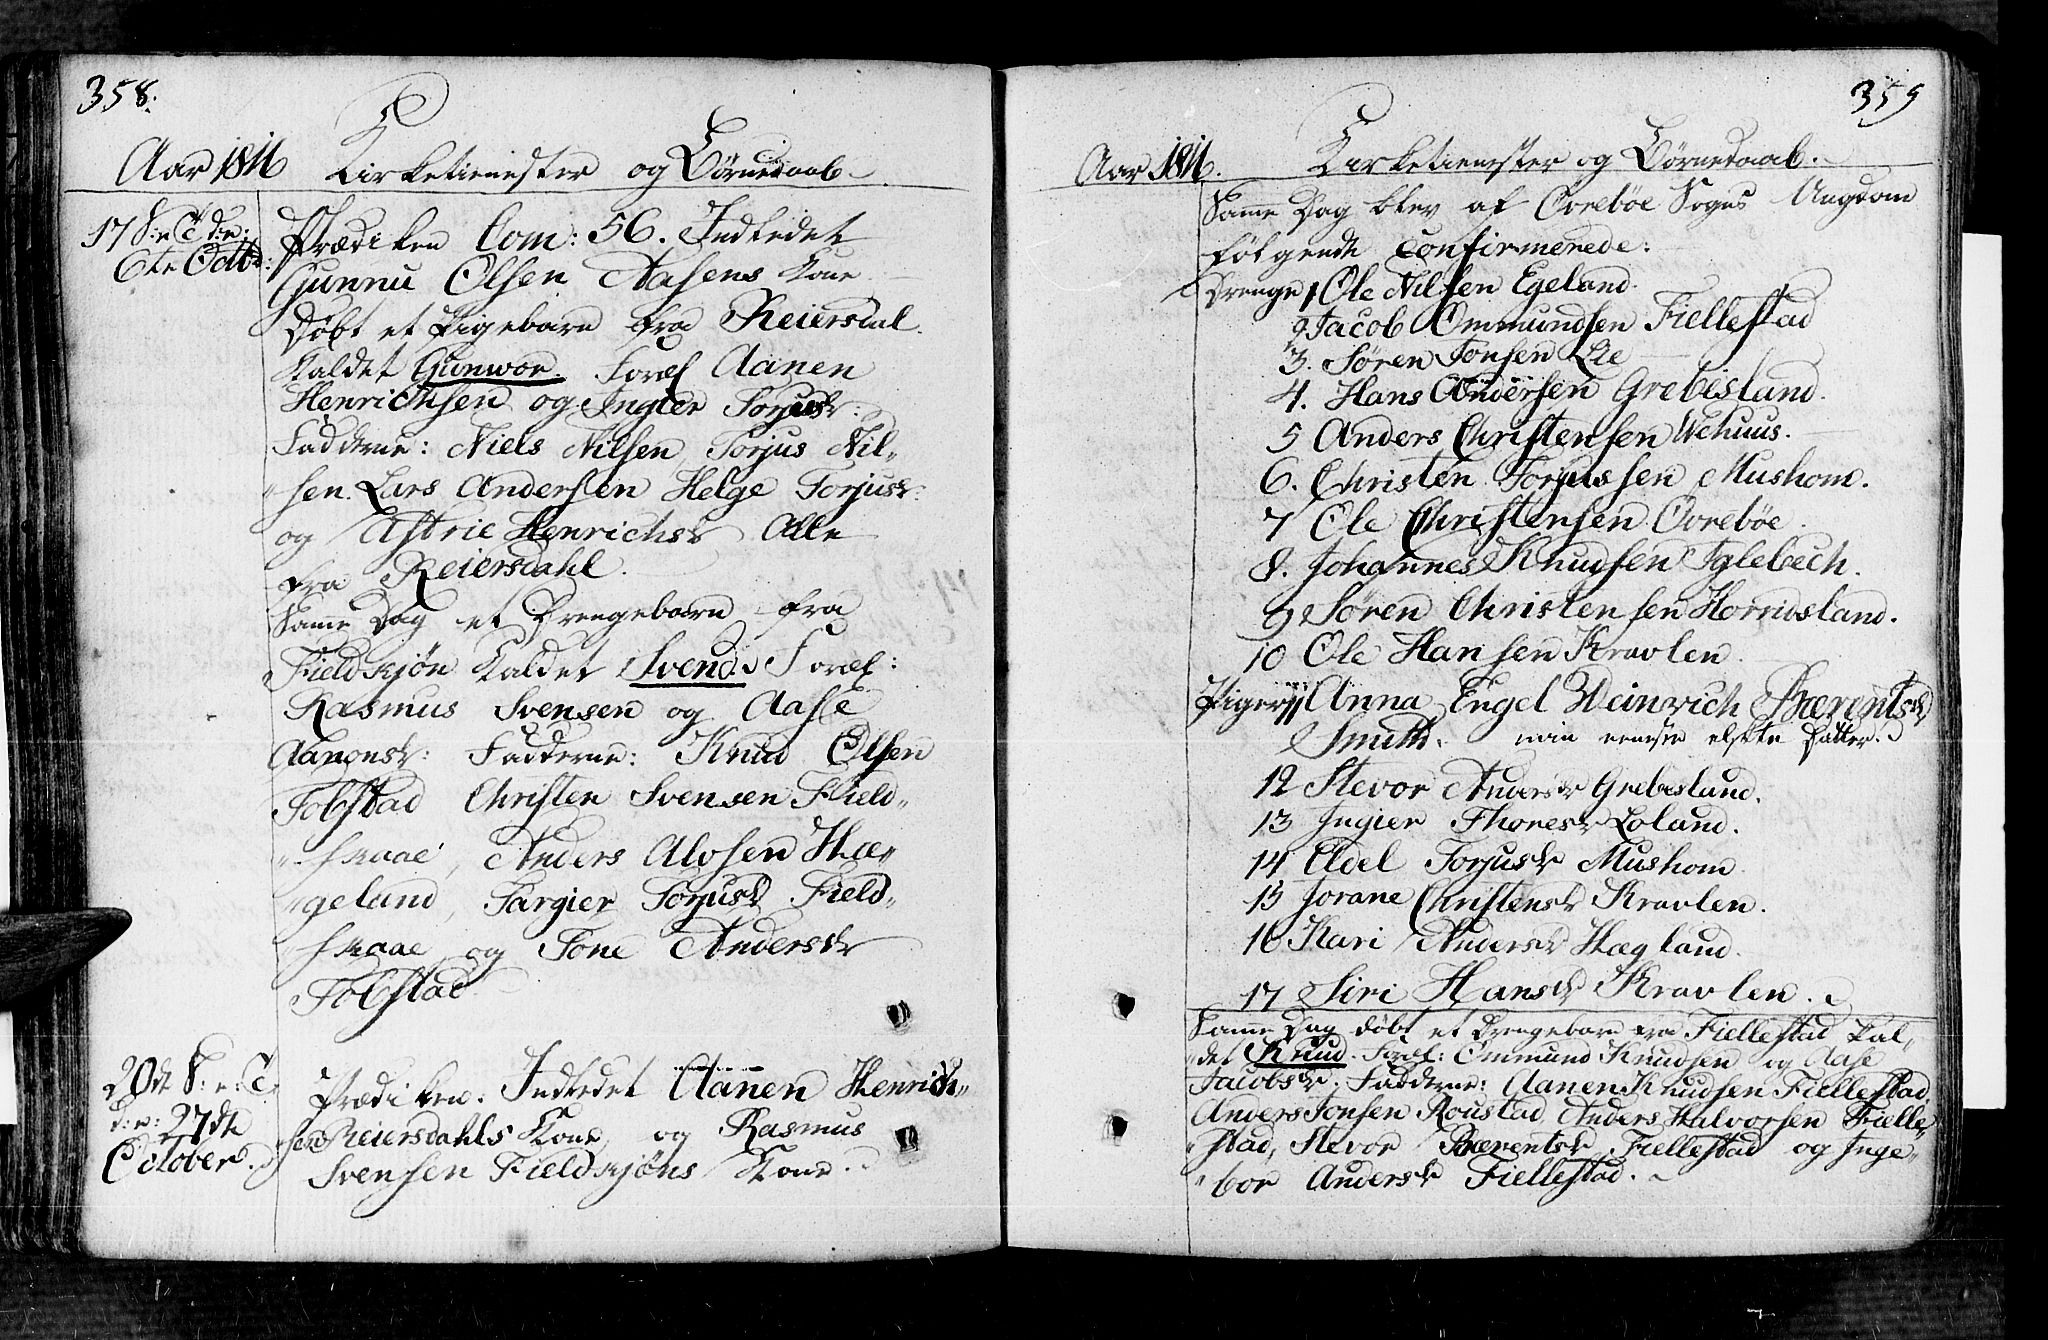 358.
Aar 1816 Kirketienester og Børnedaab.
17 S: e: T: d: e:
6te Octbr:
Prædiken Com: 56. Indledet
Gunnu Olsen Aasens Kone
Døbt et Pigebarn fra Reiersdal
kaldet Gunwor. Foræl Aanen
Henrichsen og Ingier Torjusdr:
Faddrene: Niels Nilsen Torjus Nil-
sen. Lars Andersen Helge Torjusdr:
og Astrie Henrichsdr Alle
fra Reiersdahl.
Samme Dag et Drengebarn fra
Fieldskjøn kaldet Svend. Foræl:
Rasmus Svensen og Aasse
Aanonsdr: Fadderne: Knud Olsen
Fobstad Christen Svensen Field-
skaae, Anders Alvsen Hæ-
geland, Targier Torjusdr Field-
skaae og Tone Andersdr
Fobstad
20de S: e: T:
d: e: 27de
October.
Prædiken. Indledet Aanen Henrich-
sen Reiersdahls Kone og Rasmus
Svensen Fieldskjøns Kone.
359
Aar 1816. Kirketienester og Børnedaab.
Samme Dag blev af Øvrebøe Sogns Ungdom
følgende confirmerede:
Drenge 1 Ole Nilsen Egeland.
2 Jacob Ommundsen Fiellestad
3. Søren Jonsen Lie
4. Hans Andersen Grebesland.
5 Anders Christensen Wehuus.
6. Christen Torjussen Mushom.
7 Ole Christensen Øvrebøe.
8. Johannes Knudsen Iglebech.
9 Søren Christensen Horridsland.
10 Ole Hansen Kravlen
Piger 11 Anna Engel Heinrich Bærentsdr
Smith. min eeneste elskte Datter.
12 Stevor Andersdr Grebesland.
13 Ingier Thoresdr Loland.
14 Eldel Torjusdr Mushom
15 Jorane Christensdr Kravlen.
16 Kari Andersdr Hægland.
17 Siri Hansdr Kravlen.
Samme Dag døbt et Drengebarn fra Fiellestad kal-
det Knud. Foræl: Ommund Knudsen og Aase
Jacobsdr. Fadderne: Aanen Knudsen Fiellestad,
Anders Jonsen Roustad, Anders Halvorsen Fielle-
stad, Stevor Bærentsdr Fiellestad og Inge-
bor Andersdr Fiellestad.